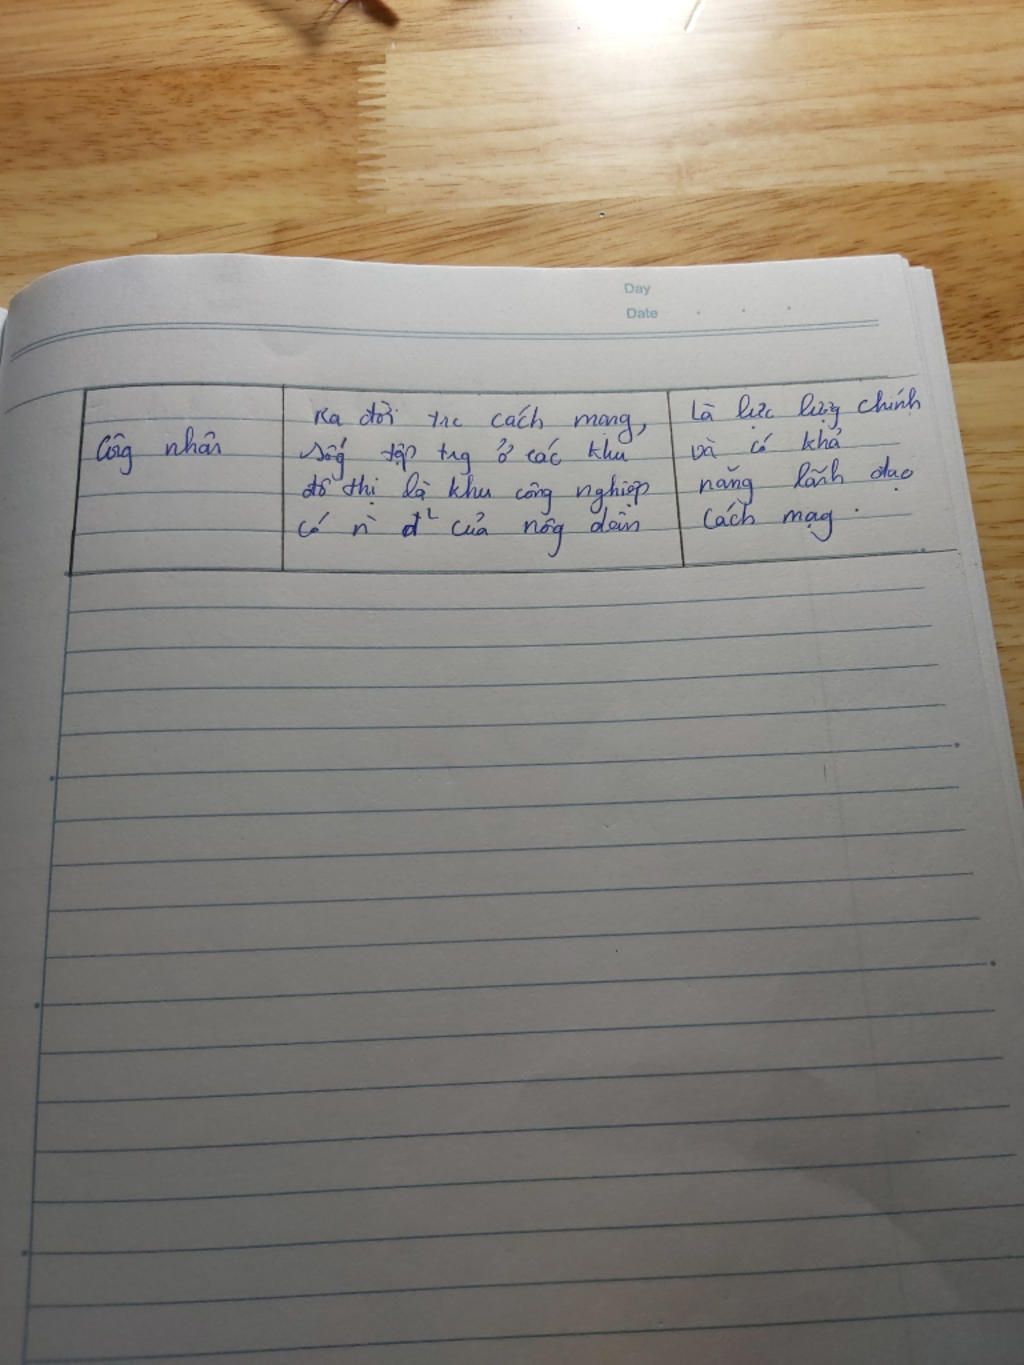 Day
Date
Công nhân
Ra đời trc cách mạng,
sống tập trg ở các khu
đô thị là khu công nghiệp
có n` đ² của nông dân
Là lực lượng chính
và có khả
năng lãnh đạo
cách mạg.